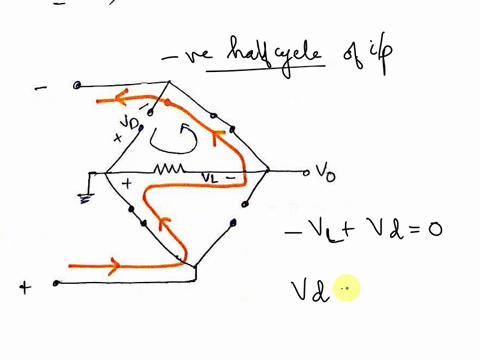 -ve half cycle of i/p
-
-
VD
+
+
VL -
Vo
- VL + Vd = 0
Vd
+